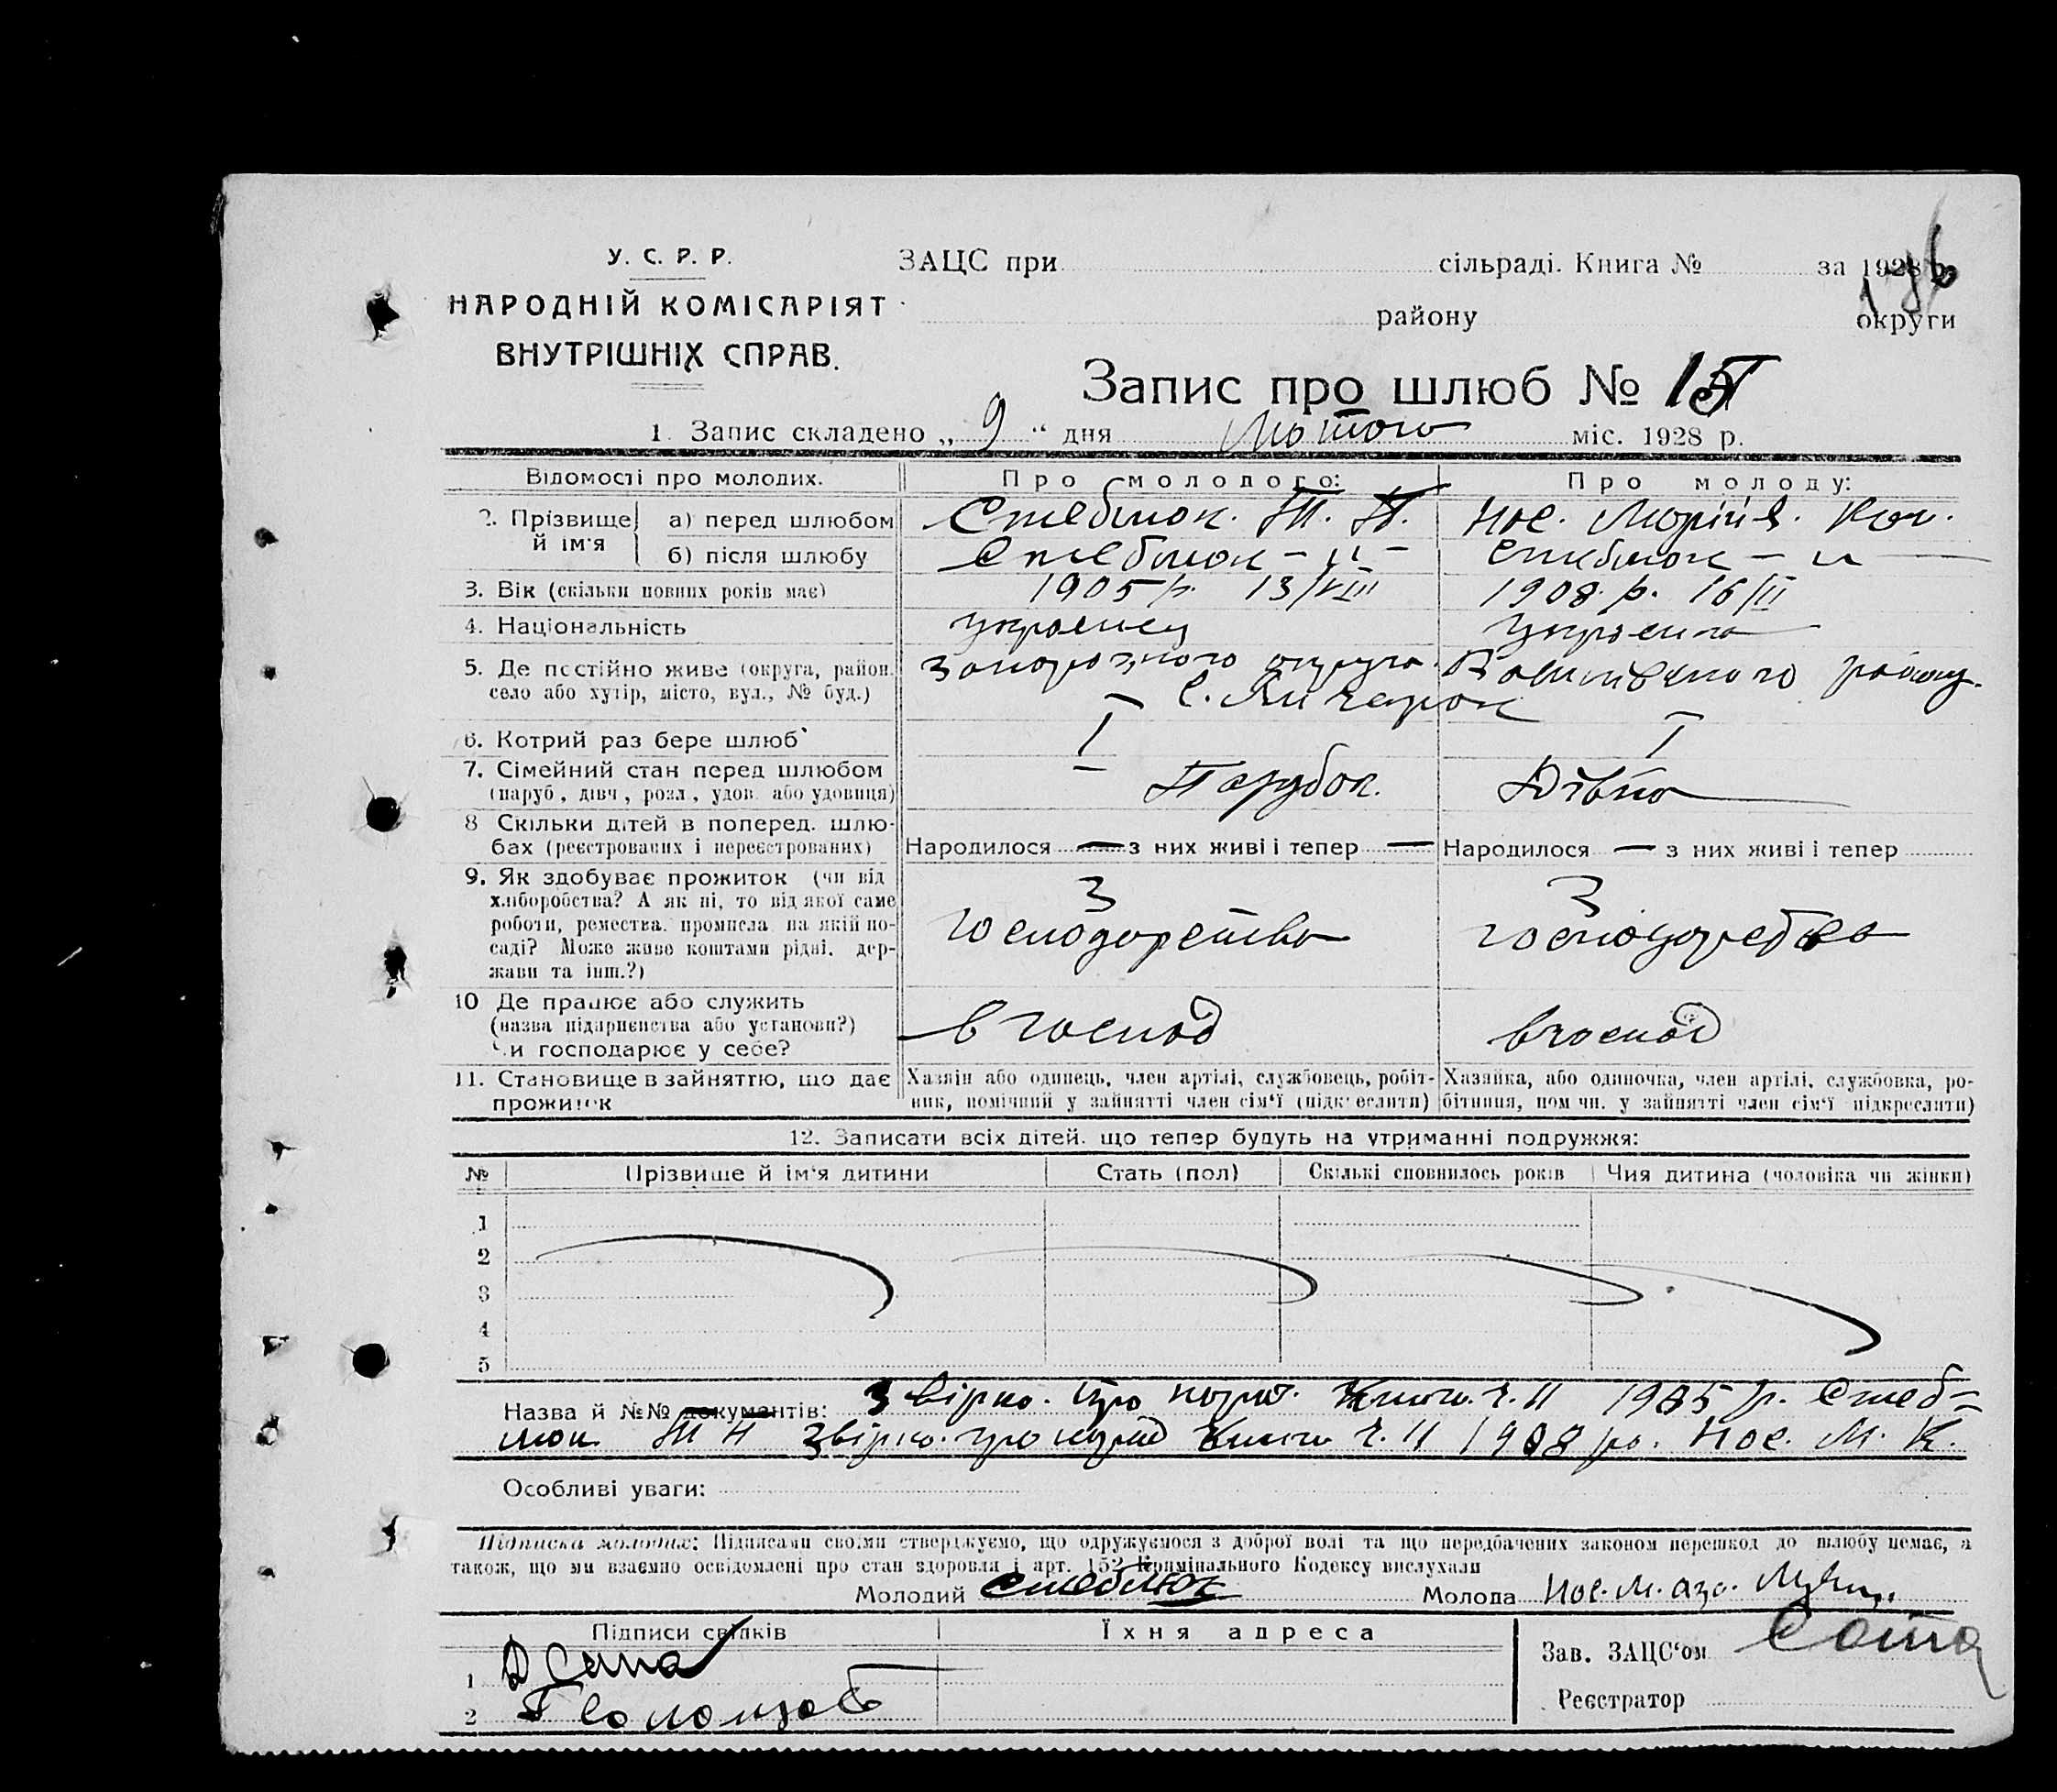 У. С. Р. Р.
НАРОДНІЙ КОМІСАРІЯТ
ВНУТРІШНІХ СПРАВ.
ЗАЦС при сільраді. Книга № за 1928
району округи
Запис про шлюб № 15
1. Запис складено „ 9 “ дня Лютого міс. 1928 р.
Відомості про молодих. Про молодого: Про молоду:
2. Прізвище й ім'я
а) перед шлюбом Стеблюк. Т. Нос. Марія. Кол.
б) після шлюбу Стеблюк – „ – Стеблюк – „
3. Вік (скільки повних років має) 1905 р. 13/VIII 1908 р. 16/II
4. Національність Українец Українка
5. Де постійно живе (округа, район, Запорожного округа. району.
село або хутір, місто, вул., № буд.) с.
6. Котрий раз бере шлюб I I
7. Сімейний стан перед шлюбом Парубок. Дівка
(паруб., дівч., розл., удов. або удовиця)
8 Скільки дітей в поперед. шлю-
бах (реєстрованих і нереєстрованих) Народилося — з них живі і тепер — Народилося — з них живі і тепер
9. Як здобуває прожиток (чи від З З
хліборобства? А як ні, то від якої саме
роботи, ремества, промисла, на якій по- господарства господарства
саді? Може живе коштами рідні, дер-
жави та інш.?)
10 Де працює або служить
(назва підприємства або установи?) в господ в господ
Чи господарює у себе?
11. Становище в зайняттю, що дає Хазяїн або одинець, член артілі, службовець, робіт- Хазяйка, або одиночка, член артілі, службовка, ро-
прожиток ник, помічний у зайнятті член сім'ї (підкреслити) бітниця, помічн. у зайнятті член сім'ї підкреслити)
12. Записати всіх дітей, що тепер будуть на утриманні подружжя:
№ Прізвище й ім'я дитини Стать (пол) Скількі сповнилось років Чия дитина (чоловіка чи жінки)
1
2
3
4
5
Назва й №№ документів: Звірко. про народ. Книги ч. II 1905 р. Стеб=
люк Звірко. про народ Книги ч. II 1908 р. Нос. М. К.
Особливі уваги:
Підписка молодих: Підписами своїми стверджуємо, що одружуємося з доброї волі та що передбачених законом перешкод до шлюбу немає, а
також, що ми взаємно освідомлені про стан здоровля і арт. 152 Кримінального Кодексу вислухали
Молодий Стеблюк Молода Нос. М.
Підписи свідків Їхня адреса
Зав. ЗАЦС'ом
1
2
Реєстратор